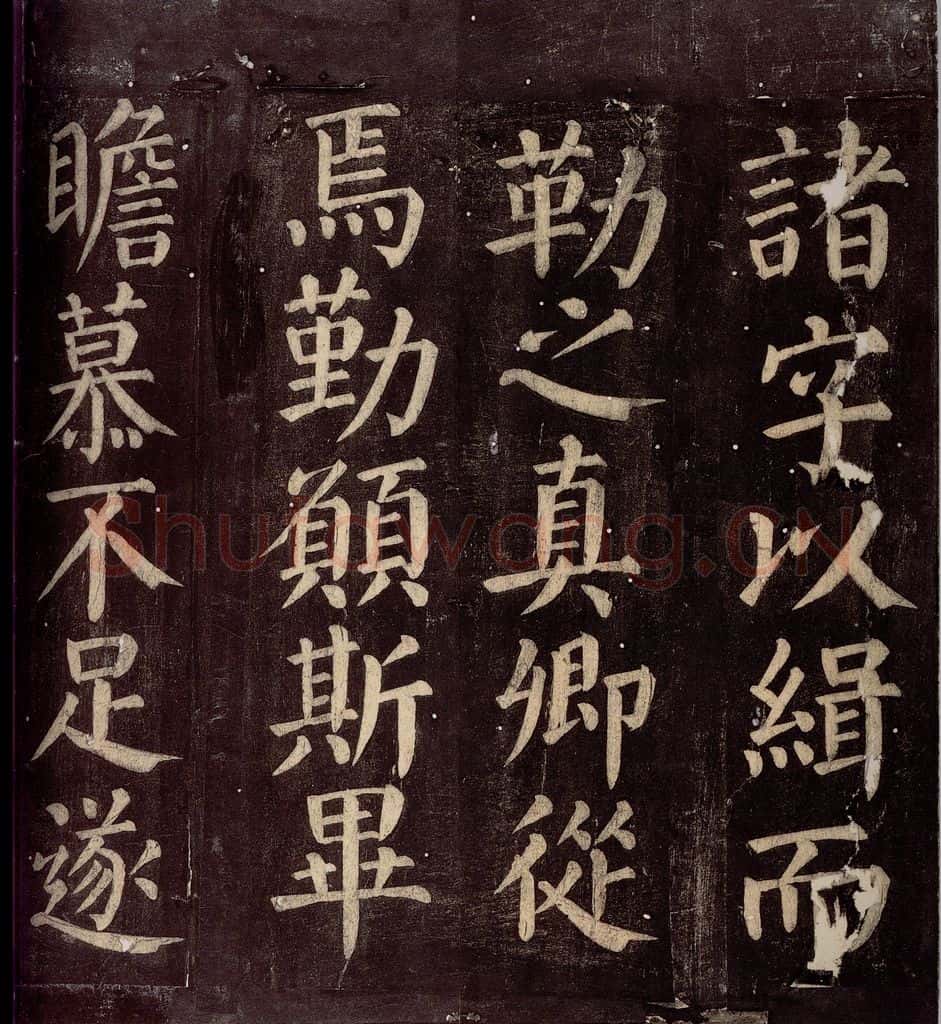 諸字以緝而
勒之真卿從
焉勤願斯畢
瞻慕不足遂
Shufawang.CN